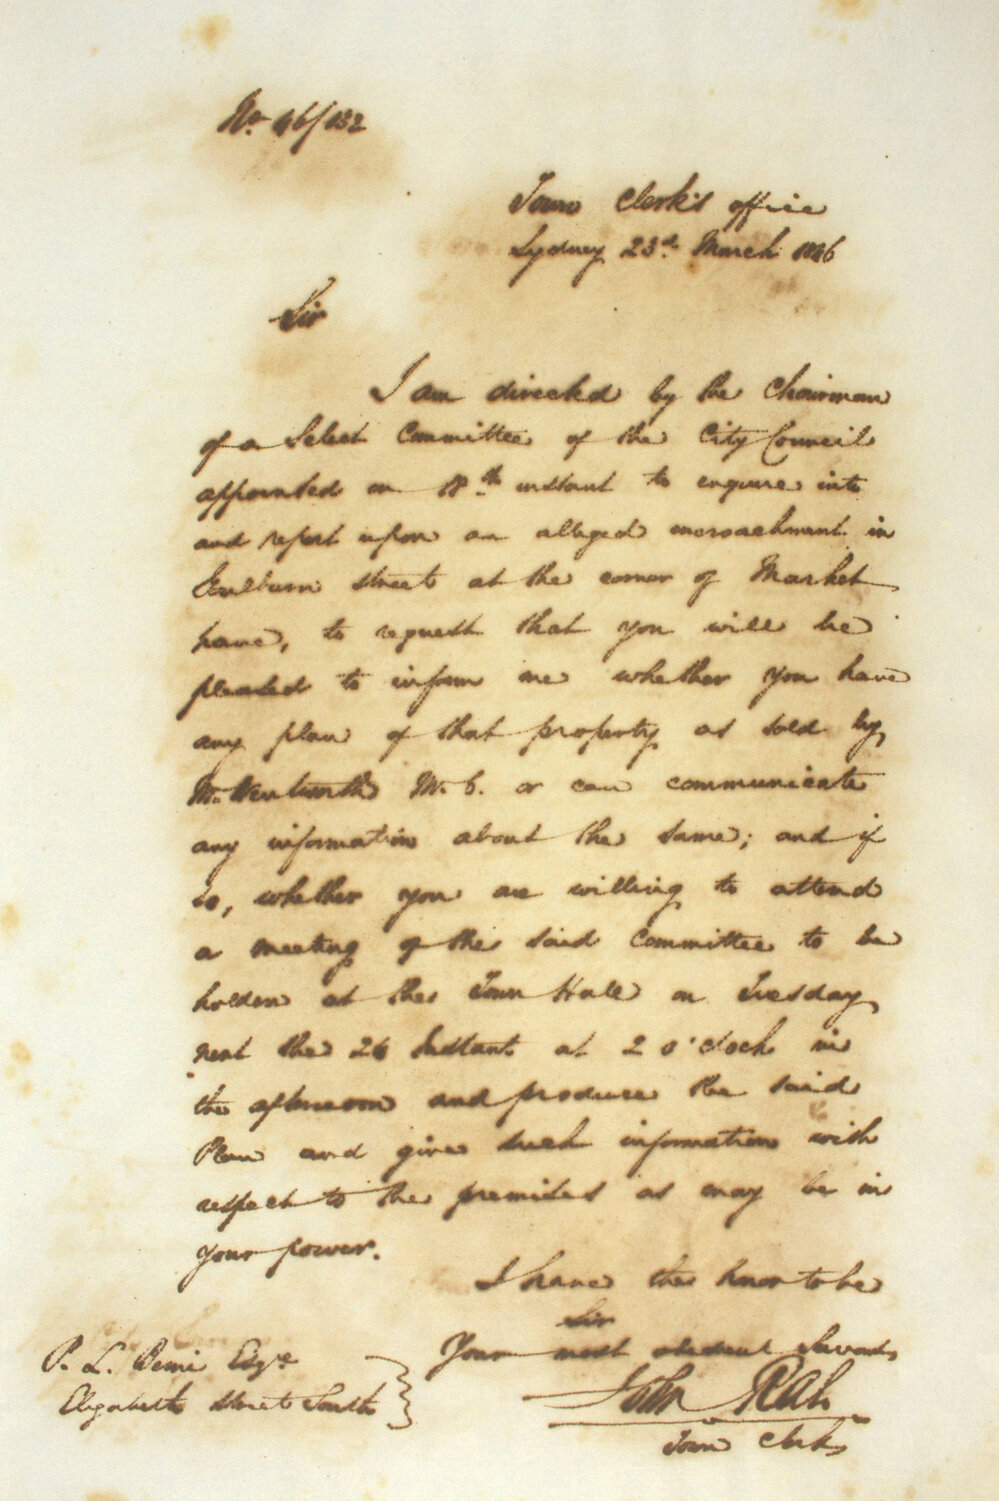 No. 46/132
Town Clerk's office
Sydney 23d. March 1846
Sir
I am directed by the Chairman
of a Select Committee of the City Council
appointed on 18th instant to enquire into
and report upon an alleged encroachment in
Goulburn street at the corner of Market
lane, to request that you will be
pleased to inform me whether you have
any plan of that property as sold by
Mr. Wentworth M.C. or can communicate
any information about the same; and if
so, whether you are willing to attend
a meeting of the said Committee to be
holden at the Town Hall on Tuesday
next the 24 Instant at 2 o'clock in
the afternoon and produce the said
Plan and give such information with
respect to the premises as may be in
your power.
I have the honor to be
Sir
Your most obedient Servant
John Rah
Town Clerk
P. L. Bemi Esqre
Elizabeth Street South